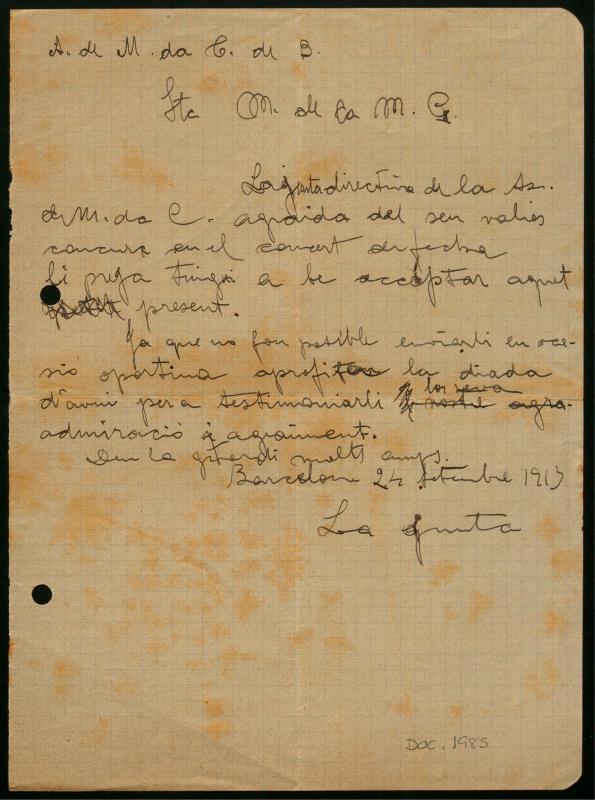 A. de M. da C. de B.
Sta M. de la M. G.
La junta directiva de la As.
de M. da C. agraida del seu valios
concurs en el concert
li prega tingui a be acceptar aquet
present.
Ja que no fou posible enviarli en oca-
sió oportuna aprofiten la diada
d'avui pera testimoniarli la seva
nostre agra-
admiració i agraiment.
Deu la guardi molts anys.
Barcelona 24 setembre 1913
La junta
DOC. 1985